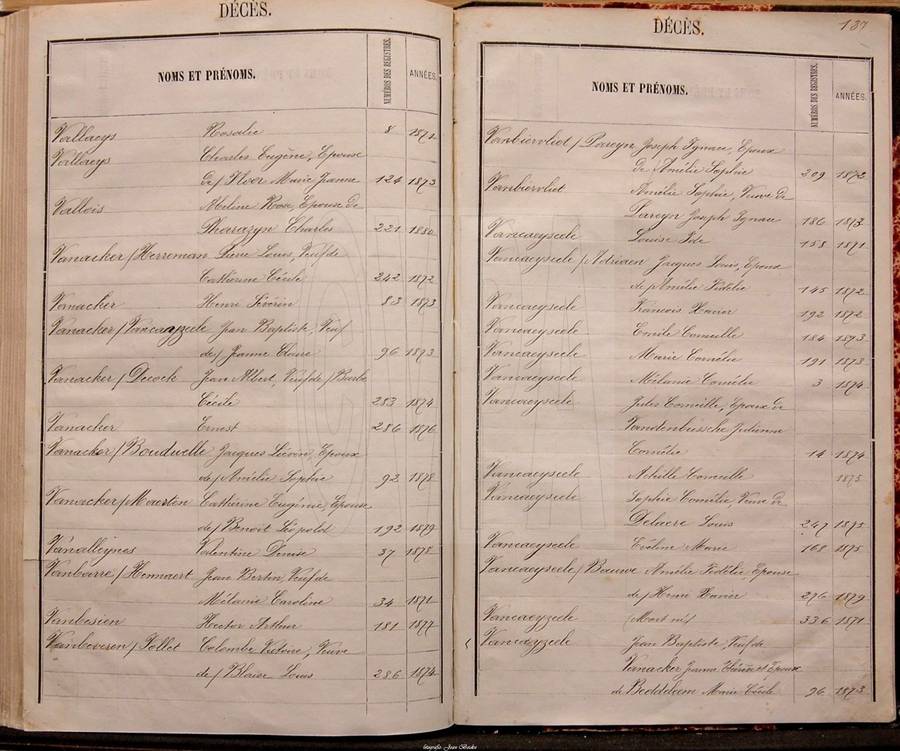 DÉCÈS.
NOMS ET PRÉNOMS. NUMÉROS DES REGISTRES. ANNÉES.
Vallaeys Rosalie 8 1871
Vallaeys Charles Eugène, Epouse
de/ Floor Marie Jeanne 124 1873
Vallois Meline Rose, Epouse de
Pharazyn Charles 221 1880
Vanacker/Herreman Pierre Louis, Veuf de
Catherine Cécile 242 1872
Vanacker Henri Séverin 83 1873
Vanacker/Vancayzeele Jean Baptiste, Veuf
de/ Jeanne Claire 96 1873
Vanacker/Decock Jean Albert, Veuf de/Barbe
Cécile 283 1874
Vanacker Ernest 286 1876
Vanacker/Boudwelle Jacques Liévin, Epoux
de/Amélie Sophie 92 1878
Vanacker/Maerten Catherine Eugénie, Epouse
de/Benoit Léopold 192 1879
Vanalleynes Valentine Denise 37 1878
Vanbarre/Hennaert Jean Bertin, Veuf de
Mélanie Caroline 34 1871
Vanbesien Hector Arthur 181 1877
Vanbeveren/Pollet Colombe Victoire, Veuve
de/Blaise Louis 286 1874
DÉCÈS. 137
NOMS ET PRÉNOMS. NUMÉROS DES REGISTRES. ANNÉES.
Vanbiervliet/Pareyn Joseph Ignace, Epoux
de Amélie Sophie 209 1872
Vanbiervliet Amélie Sophie, Veuve de
Pareyn Joseph Ignace 186 1873
Vancaeyseele Louise Ide 158 1871
Vancaeyseele/Adriaen Jacques Louis, Epoux
de/Amélie Fidélie 145 1872
Vancaeyseele Francois Xavier 192 1872
Vancaeyseele Emile Corneille 184 1873
Vancaeyseele Marie Cornélie 191 1873
Vancaeyseele Mélanie Cornélie 3 1874
Vancaeyseele Jules Corneille, Epoux de
Vandenbussche Julienne
Cornélie 14 1874
Vancaeyseele Achille Corneille 1875
Vancaeyseele Sophie Cornélie, Veuve de
Delacre Louis 247 1875
Vancaeyseele Eveline Marie 168 1875
Vancaeyseele/Bauwe Amélie Fidélie Epouse
de/Henri Xavier 276 1879
Vancaeyzeele (Mort né) 336 1871
Vancayzeele Jean Baptiste, Veuf de
Vanacker Jeanne et Epoux
de Bedddeem Marie Cécile 96 1873
fotografie Jean Beeke